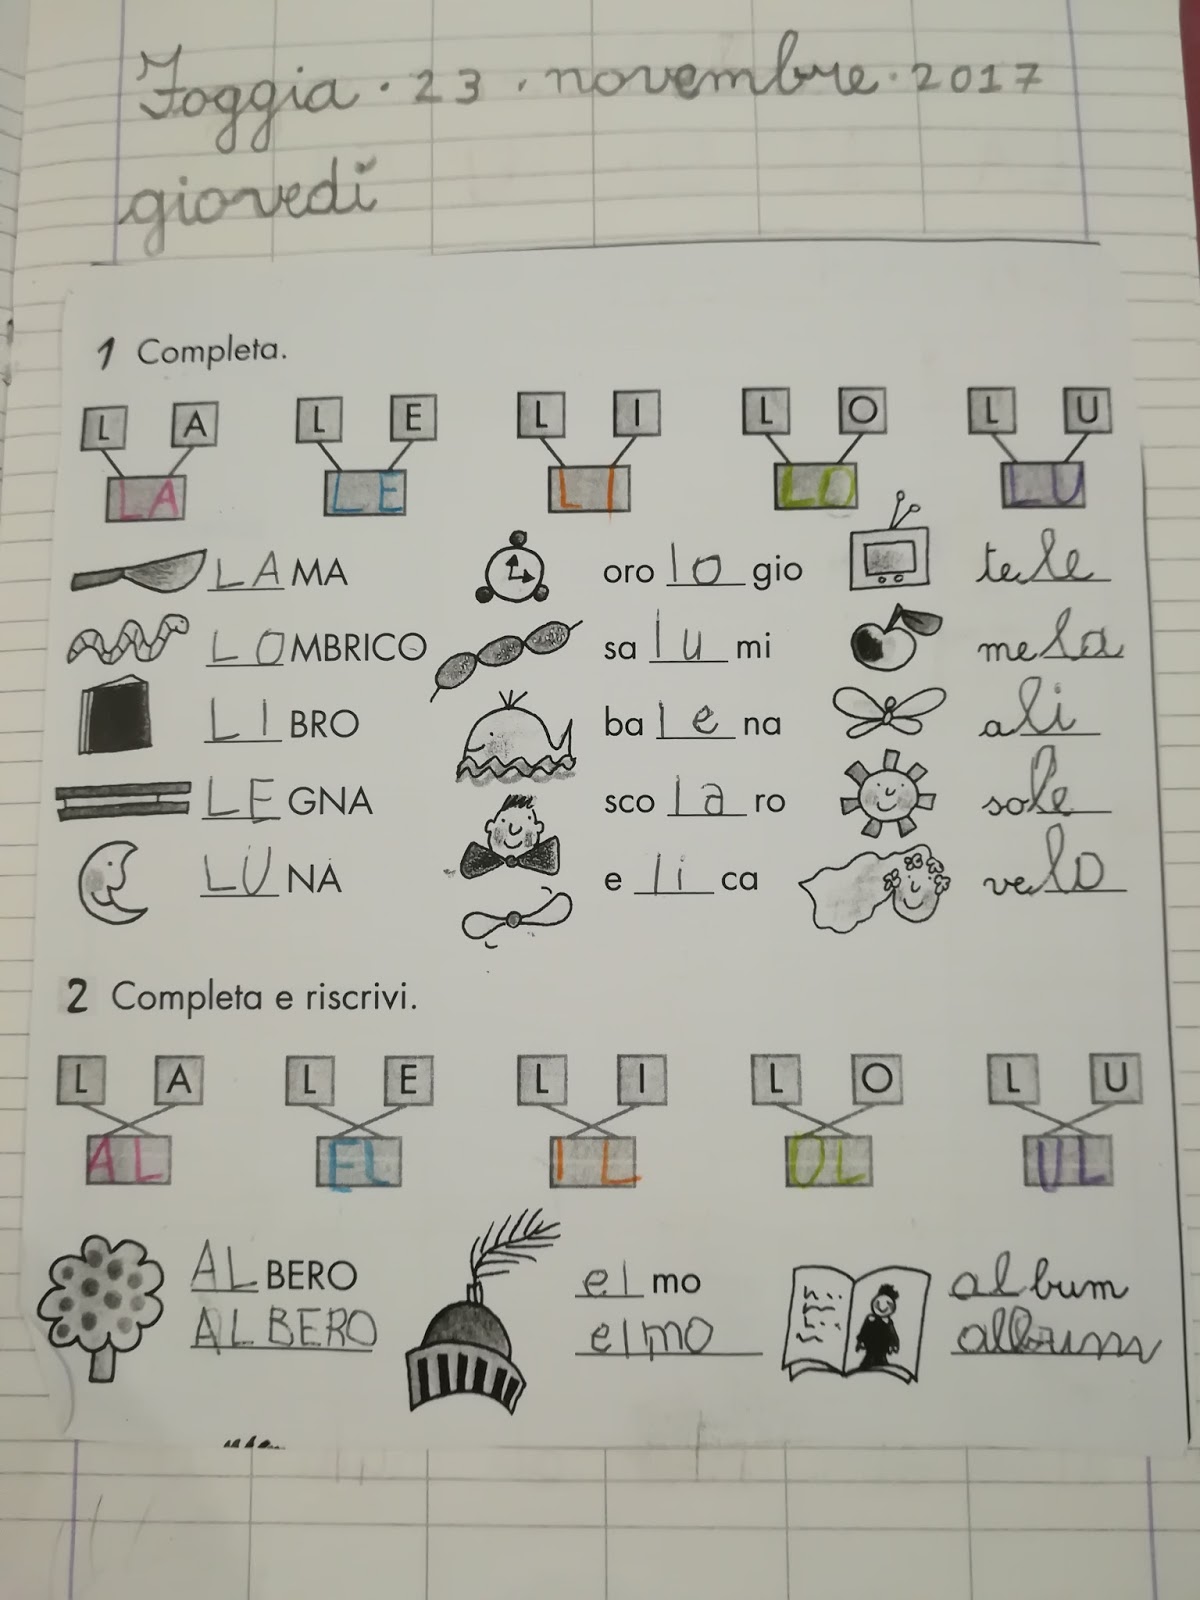 Foggia . 23 . novembre . 2017
giovedì
1 Completa.
L A L E L I L O L U
LA LE LI LO LU
LAMA orologio tele
LOMBRICO salumi mela
LIBRO balena ali
LEGNA scolaro sole
LUNA elica velo
2 Completa e riscrivi.
L A L E L I L O L U
AL EL IL OL UL
ALBERO elmo album
ALBERO elmo album